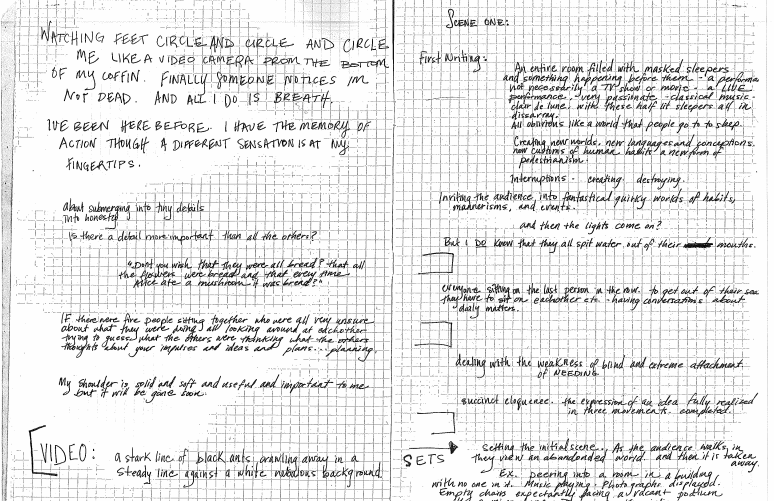 WATCHING FEET CIRCLE AND CIRCLE AND CIRCLE
ME LIKE A VIDEO CAMERA FROM THE BOTTOM
OF MY COFFIN. FINALLY SOMEONE NOTICES I'M
NOT DEAD. AND ALL I DO IS BREATH.
I'VE BEEN HERE BEFORE. I HAVE THE MEMORY OF
ACTION THOUGH A DIFFERENT SENSATION IS AT MY
FINGERTIPS.
about submerging into tiny details
into honesty
Is there a detail more important than all the others?
"Don't you wish that they were all bread? that all
the flowers were bread and that every time
Alice ate a mushroom it was bread?"
IF there were five people sitting together who were all very unsure
about what they were doing all looking around at eachother
trying to guess what the others were thinking what the others
thoughts about your impulses and ideas and plans... planning.
My shoulder is solid and soft and useful and important to me
but it will be gone soon.
VIDEO: a stark line of black ants crawling away in a
steady line against a white nebulous background.
SCENE ONE:
First Writing:
An entire room filled with masked sleepers
and something happening before them - a performa
not necessarily a TV show or movie - a LIVE
performance. very passionate - classical music -
clair de lune. with these half lit sleepers all in
dissarray.
All oblivious like a world that people go to to sleep.
Creating new worlds. new languages and conceptions.
new customs of human habits. a new form of
pedestrianism.
Interruptions. creating destroying.
Inviting the audience into fantastical quirky worlds of habits,
mannerisms, and events.
and then the lights come on?
But I DO know that they all spit water out of their mouths.
everyone sitting on the last person in the row. to get out of their sea
they have to sit on eachother etc. - having conversations about
"daily matters.
dealing with the weakness of blind and extreme attachment
of NEEDING.
succinct eloquence. the expression of an idea fully realized
in three movements. completed.
SETS setting the initial scene.. As the audience walks in
they view an abandonded world. and then it is taken
away.
Ex. peering into a room in a building
with no one in it. Music playing. Photographs displayed.
Empty chairs expectantly facing a vacant podium